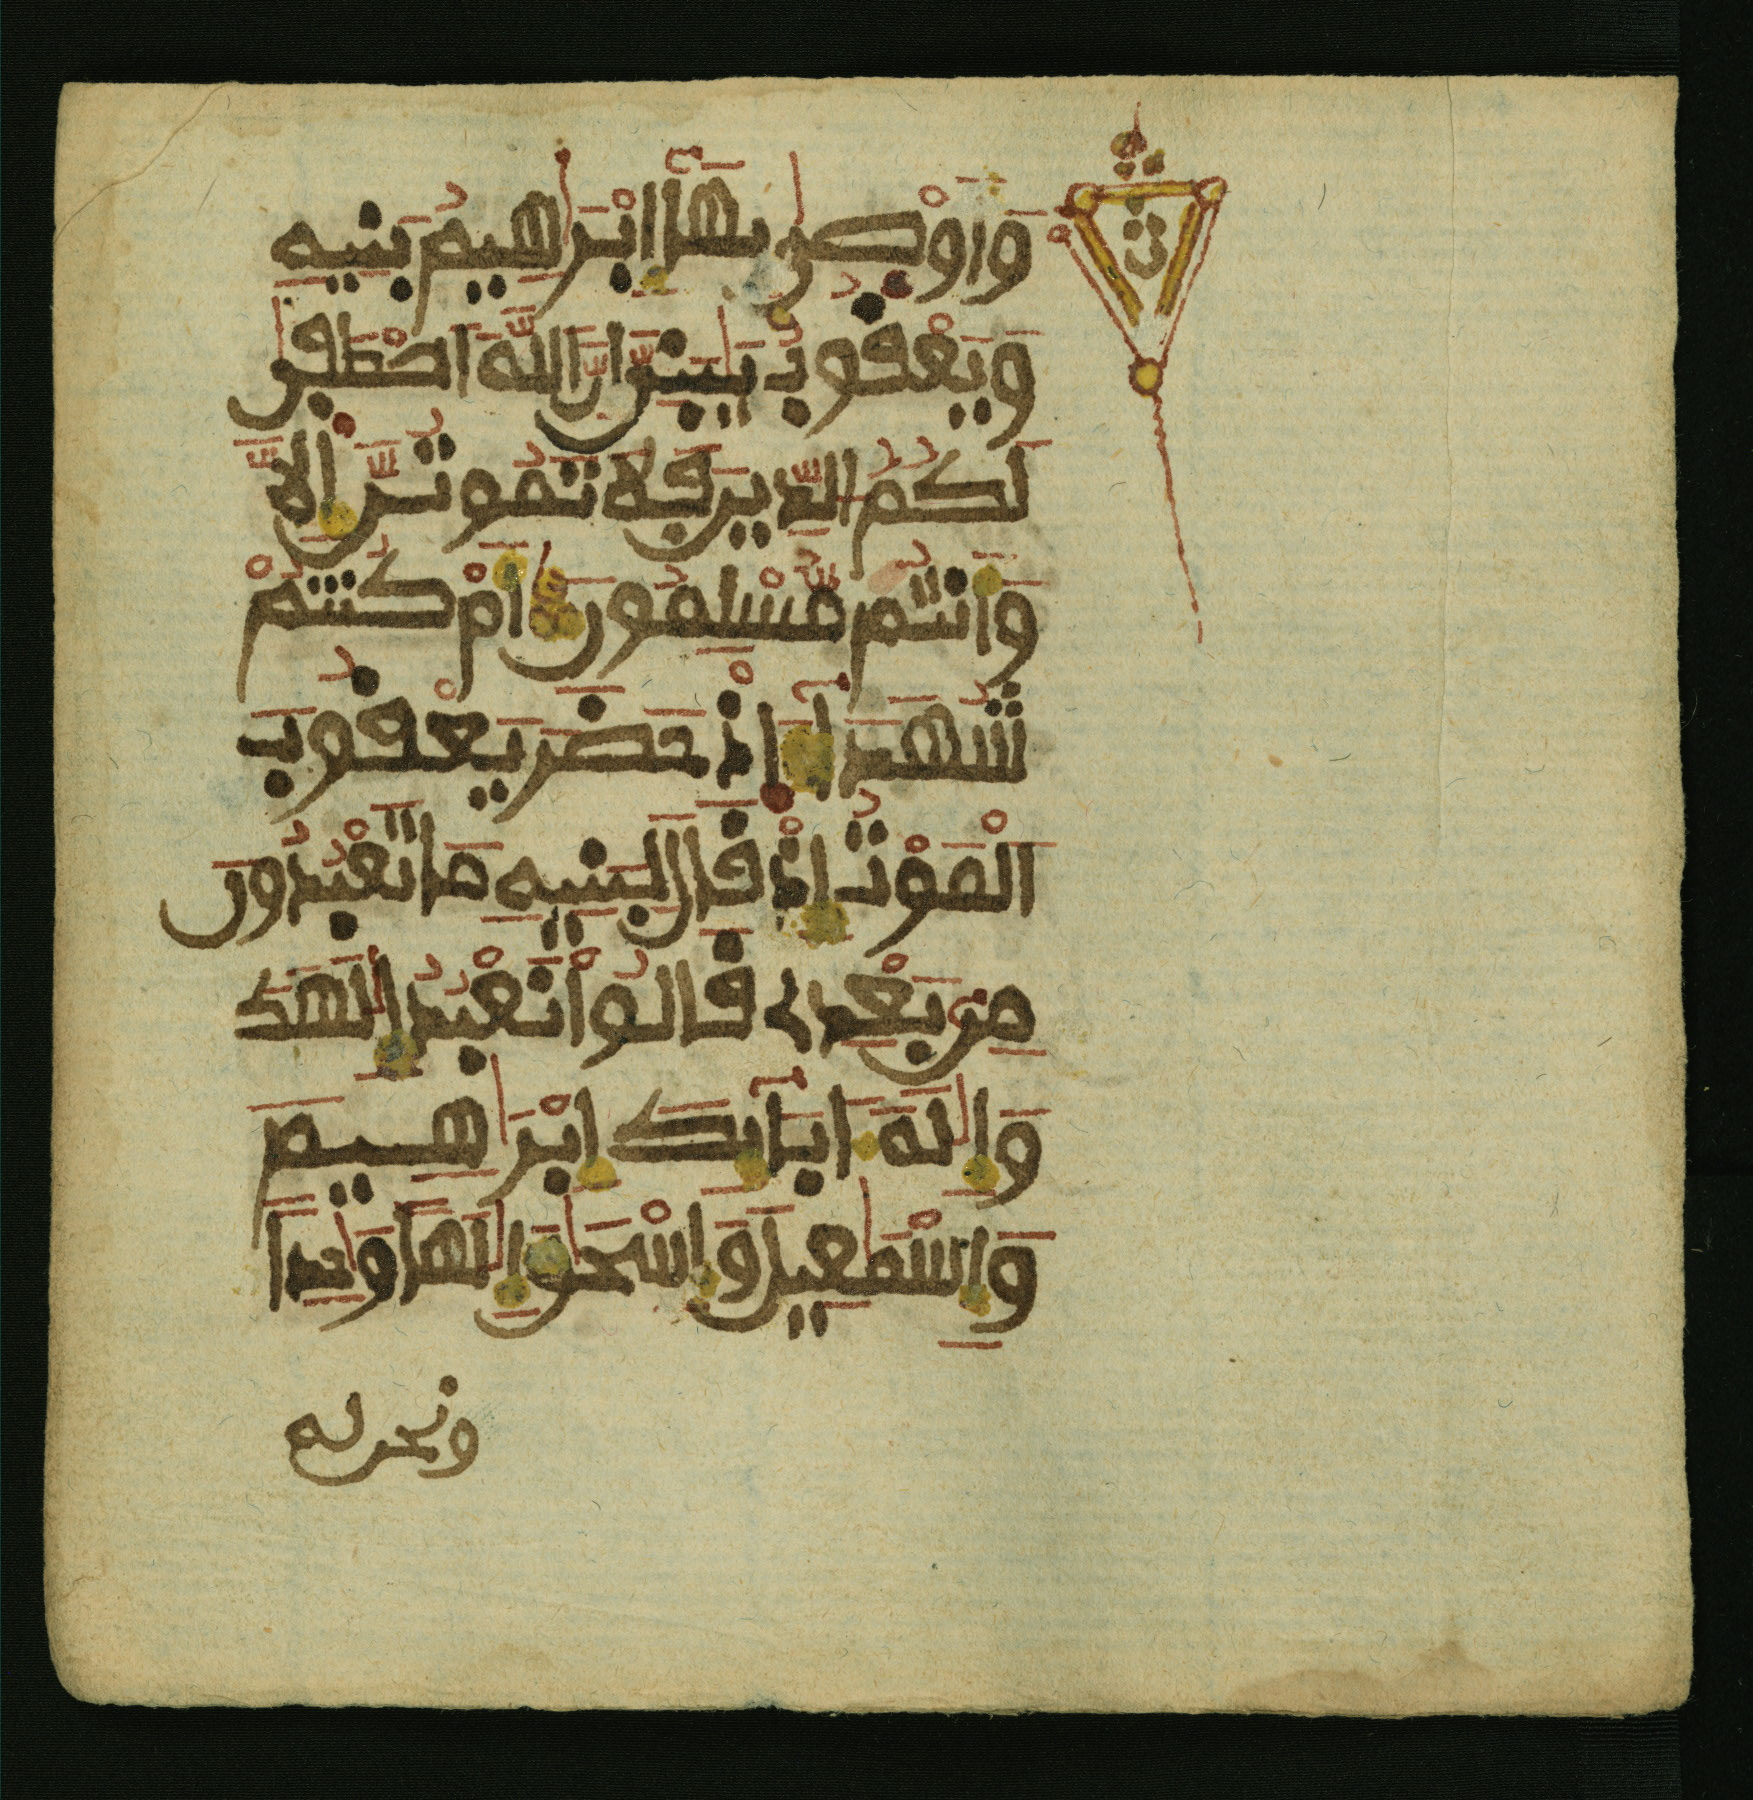 ثمن
وَأَوْصٜىٰ بِهَآ إِبْرَٰهِيمُ بَنِيهِ
وَيَعْقُوبُ يَٰبَنِيَّ إِنَّ اَللَّهَ اَصْطَفٜىٰ
لَكُمُ اُلدِّينَ فَلَا تَمُوتُنَّ إِلَّا
وَأَنتُم مُّسْلِمُونَ أَمْ كُنتُمْ
شُهَدَآءَ اِذْ حَضَرَ يَعْقُوبَ
اَلْمَوْتُ إِذْ قَالَ لِبَنِيهِ مَا تَعْبُدُونَ
مِنۢ بَعْدِے قَالُواْ نَعْبُدُ إِلَٰهَكَ
وَإِلَٰهَ ءَابَآئِكَ إِبْرَٰهِيمَ
وَإِسْمَٰعِيلَ وَإِسْحَٰقَ إِلَٰهاً وَٰحِداً
ونحن له